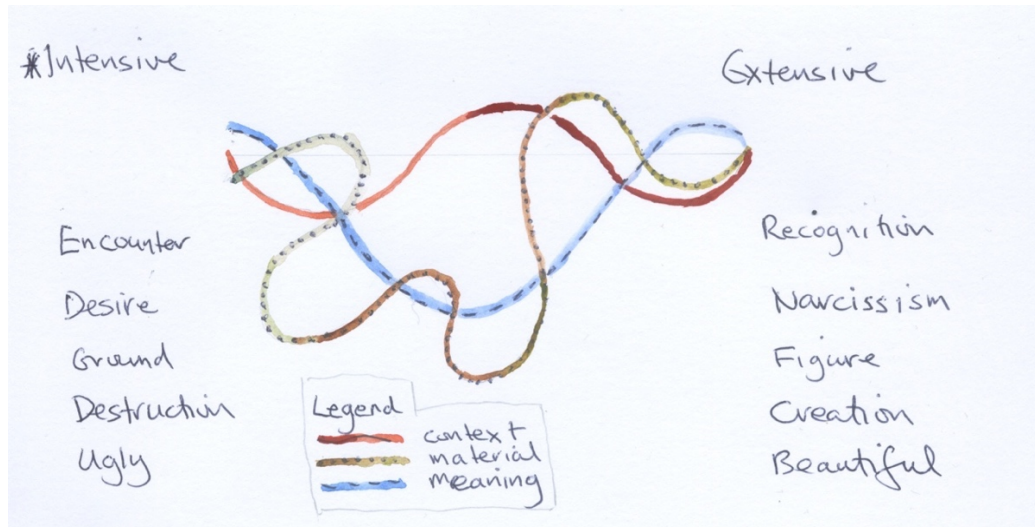 *Intensive
Extensive
Encounter
Desire
Ground
Destruction
Ugly
Recognition
Narcissism
Figure
Creation
Beautiful
Legend
context
material
meaning